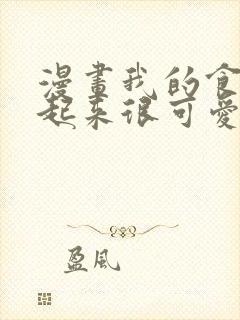 漫畫我的食
起來很可愛
盈風